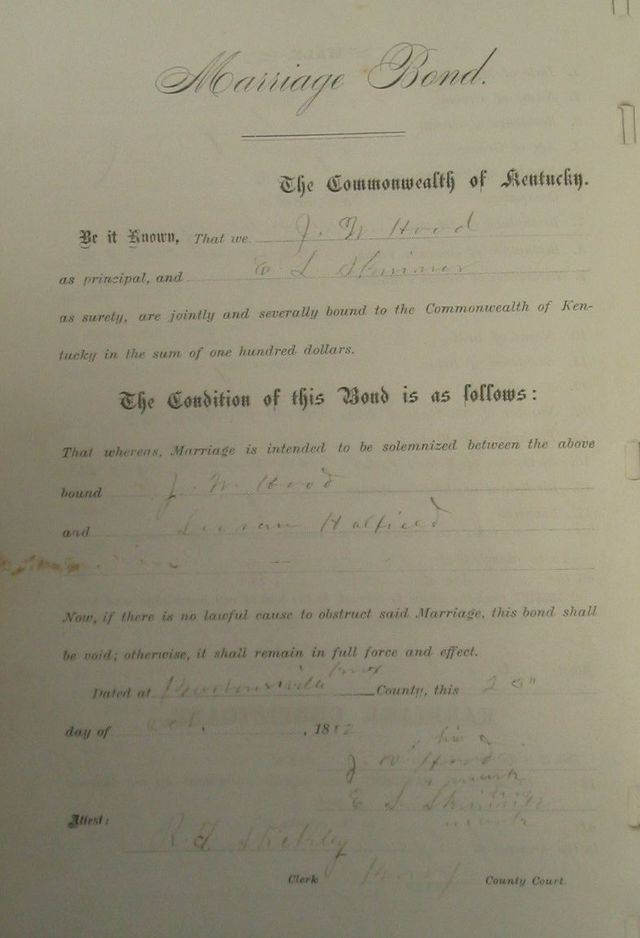 Marriage Bond.
The Commonwealth of Kentucky.
Be it Known, That we J. W Hood
as principal, and E L Skinner
as surety, are jointly and severally bound to the Commonwealth of Ken-
tucky in the sum of one hundred dollars.
The Condition of this Bond is as follows:
That whereas, Marriage is intended to be solemnized between the above
bound J. W Hood
and Susan Halfield
Now, if there is no lawful cause to obstruct said Marriage, this bond shall
be void; otherwise, it shall remain in full force and effect.
Dated at Barboursville Knox County, this
day of , 18
his
J. W Hood
mark
E L Skinner
mark
Attest:
Clerk County Court.